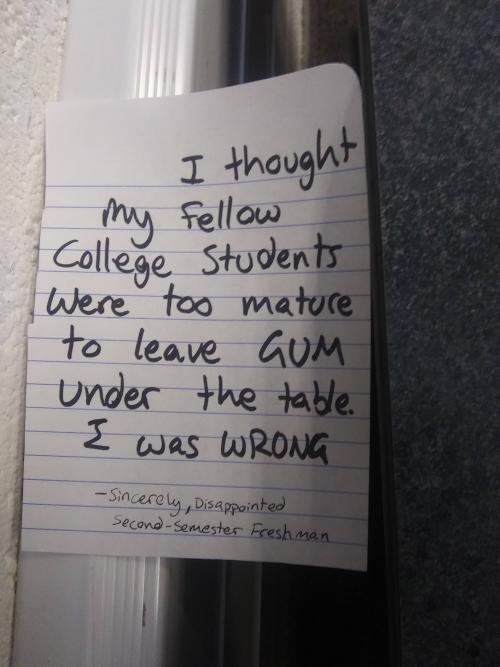 I thought
my fellow
College Students
were too mature
to leave GUM
under the table.
I was WRONG
-Sincerely, Disappointed
Second-Semester Freshman